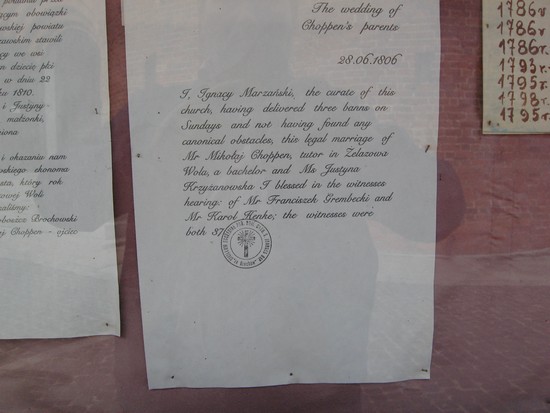 pisania przez
ącym obowiązki
wskiej powiatu
zawskim stawili
cy we wsi
m dziecię płci
w dniu 22
ku 1810.
i Justyny
małżonki,
iona
i okazaniu nam
oskiego ekonoma
sta, który rok
zowej Woli
aliśmy:
obosżcz Brochowski
j Choppen - ojciec
The wedding of
Choppen's parents
28.06.1806
I, Ignacy Marzański, the curate of this
church, having delivered three banns on
Sundays and not having found any
canonical obstacles, this legal marriage of
Mr Mikołaj Choppen, tutor in Żelazowa
Wola, a bachelor and Ms Justyna
Krzyżanowska I blessed in the witnesses
hearing: of Mr Franciszek Grembecki and
Mr Karol Henke; the witnesses were
both 37
1786r
1786r.
1786r.
1793r.
1795r.
1798r.
1795r.